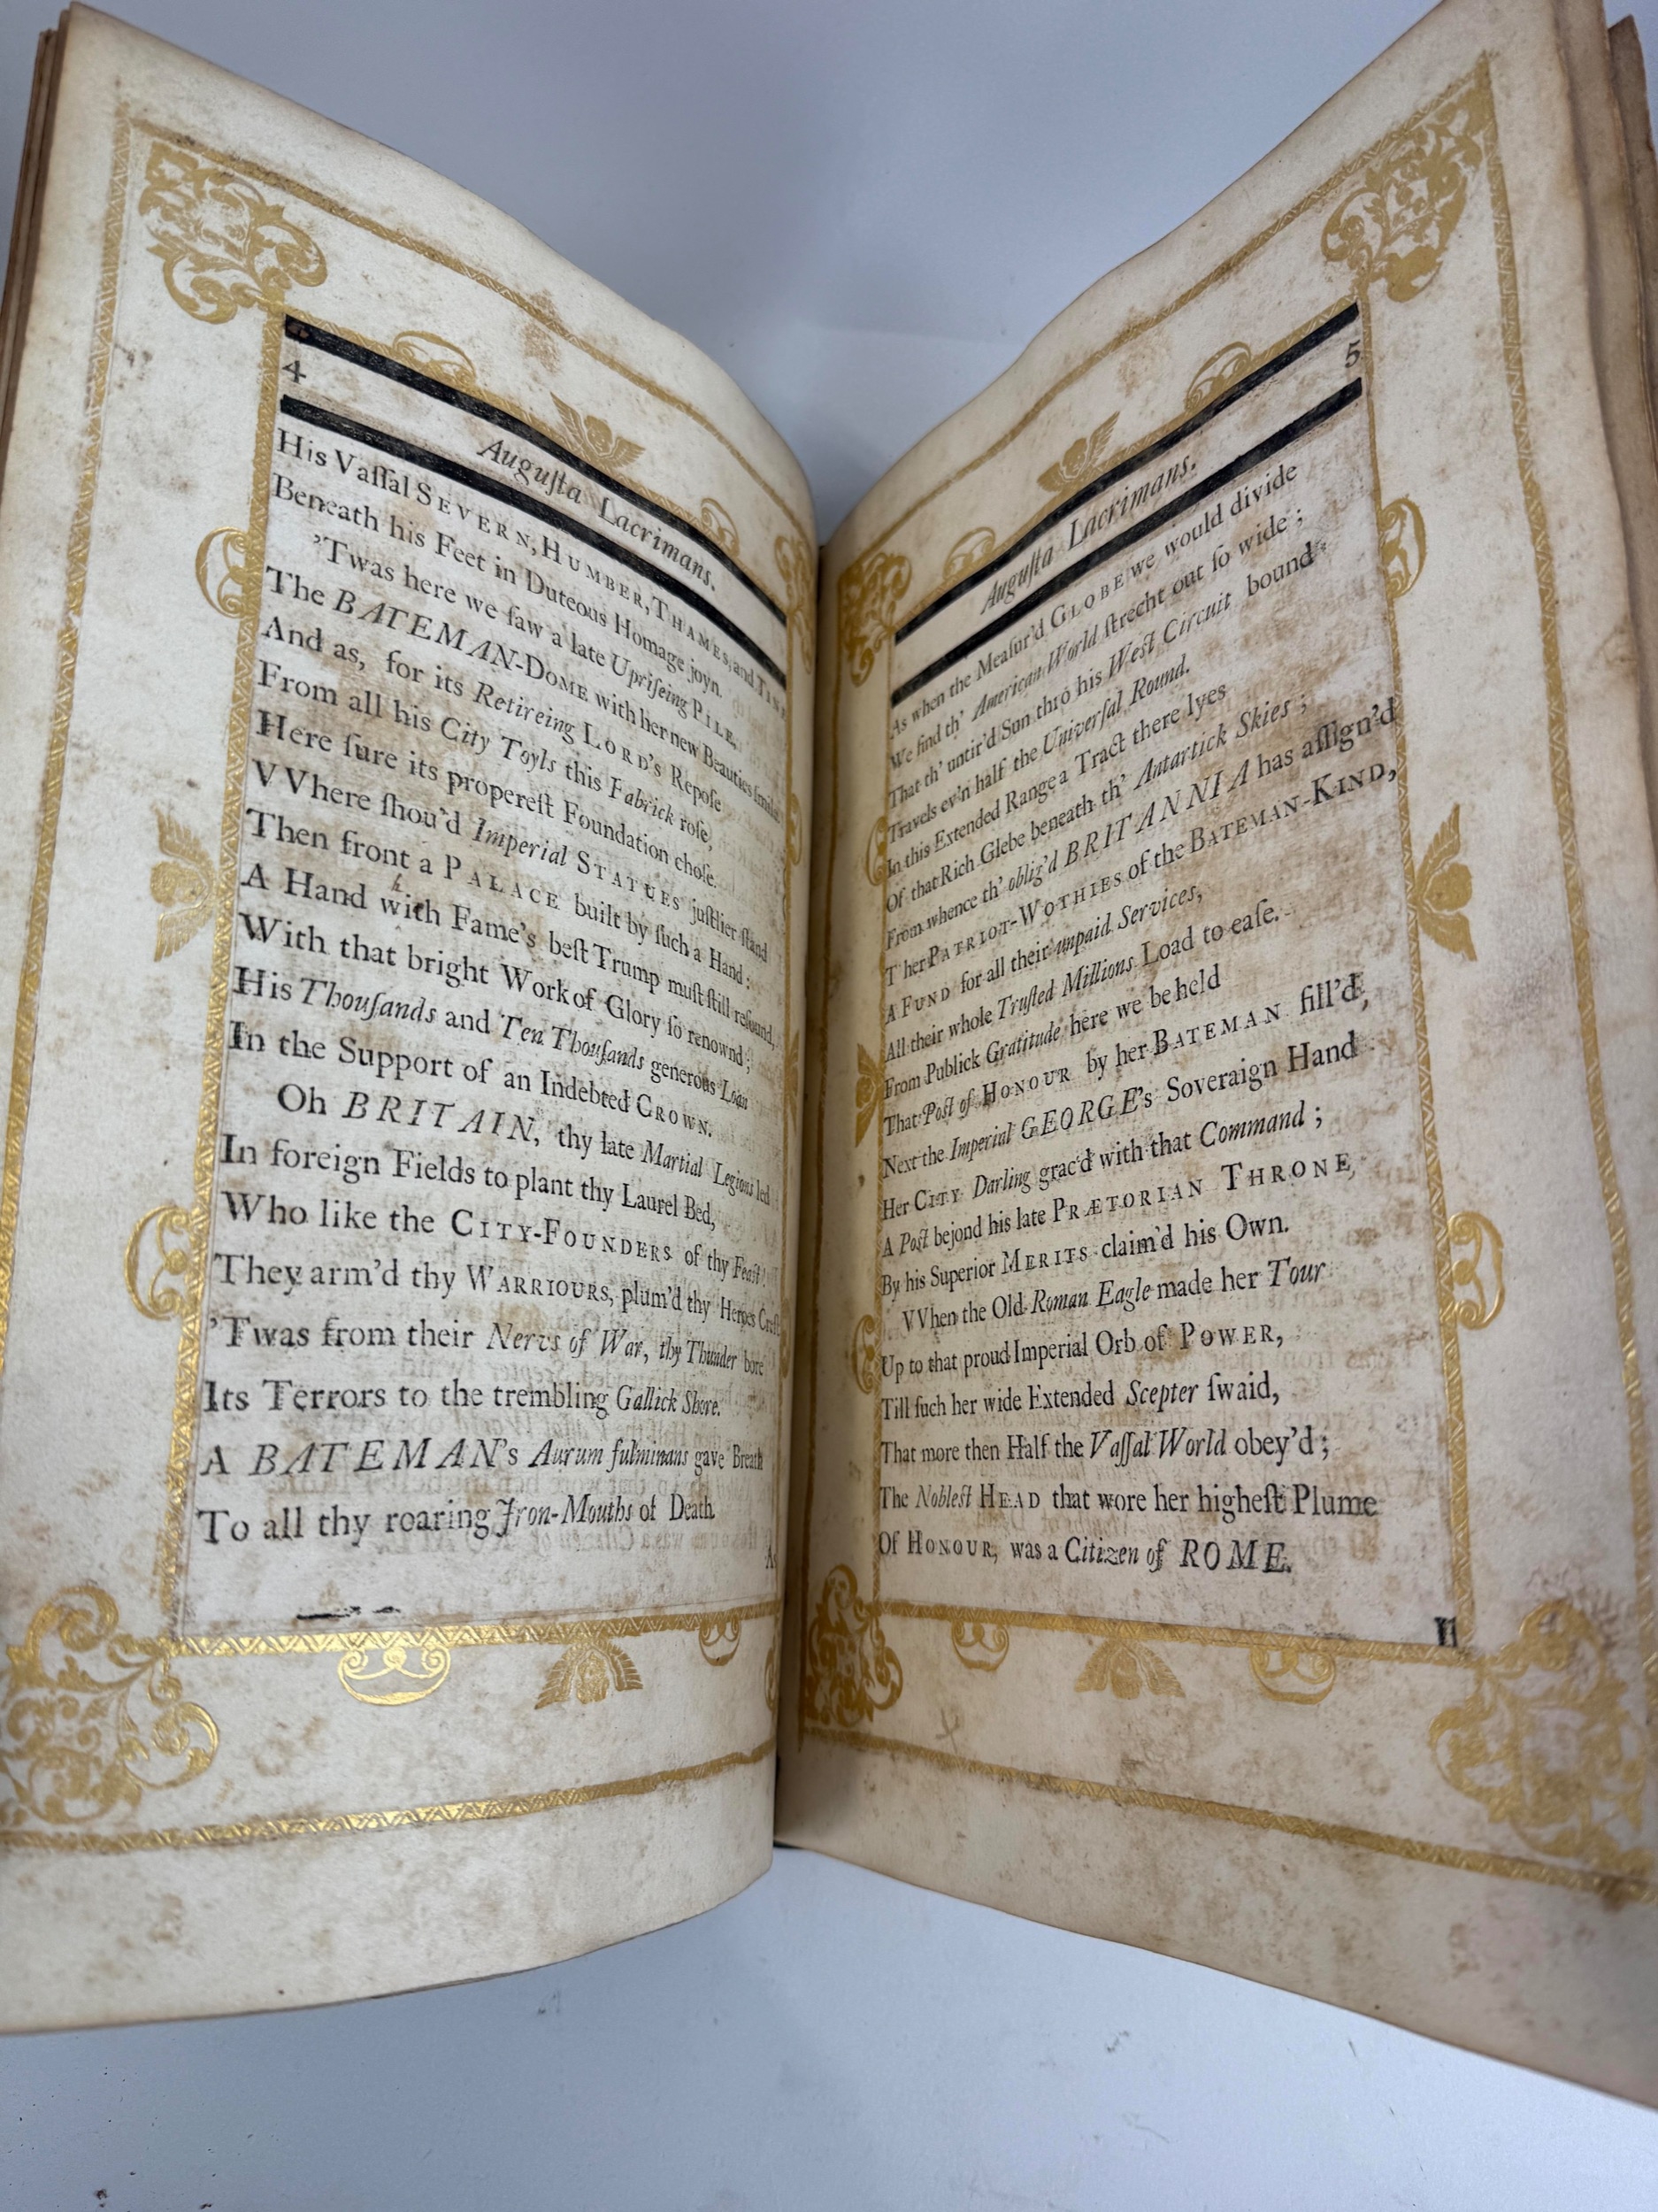 4
Auguſta Lacrimans.
His Vaſſal SEVERN, HUMBER, THAMES, and TINE
Beneath his Feet in Duteous Homage joyn.
'Twas here we ſaw a late Upriſeing PILE,
The BATEMAN-DOME with her new Beauties ſmile.
And as, for its Retireing LORD's Repoſe
From all his City Toyls this Fabrick roſe,
Here ſure its propereſt Foundation choſe.
VVhere ſhou'd Imperial STATUES juſtlier ſtand
Then front a PALACE built by ſuch a Hand:
h
A Hand with Fame's beſt Trump muſt ſtill reſound,
With that bright Work of Glory ſo renownd;
His Thouſands and Ten Thouſands generous Loan
In the Support of an Indebted CROWN.
Oh BRITAIN, thy late Martial Legions led
In foreign Fields to plant thy Laurel Bed,
Who like the CITY-FOUNDERS of thy Feaſt!
They arm'd thy WARRIOURS, plum'd thy Heroes Creſt
'Twas from their Nervs of War, thy Thunder bore
Its Terrors to the trembling Gallick Shore.
A BATEMAN's Aurum fulminans gave Breath
To all thy roaring Iron-Mouths of Death.
A
5
Auguſta Lacrimans.
As when the Meaſur'd GLOBE we would divide
We find th' American World ſtrecht out ſo wide;
That th' untir'd Sun thro his Weſt Circuit bound
Travels ev'n half the Univerſal Round.
In this Extended Range a Tract there lyes
Of that Rich Glebe beneath th' Antartick Skies;
From whence th' oblig'd BRITANNIA has aſſign'd
T her PATRIOT-WOTHIES of the BATEMAN-KIND,
A FUND for all their unpaid Services,
All their whole Truſted Millions Load to eaſe.
From Publick Gratitude here we beheld
That Poſt of HONOUR by her BATEMAN fill'd,
Next the Imperial GEORGE's Soveraign Hand
Her CITY Darling grac'd with that Command;
A Poſt bejond his late PRÆTORIAN THRONE,
By his Superior MERITS claim'd his Own.
VVhen the Old Roman Eagle made her Tour
Up to that proud Imperial Orb of POWER,
Till ſuch her wide Extended Scepter ſwaid,
That more then Half the Vaſſal World obey'd;
The Nobleſt HEAD that wore her higheſt Plume
Of HONOUR, was a Citizen of ROME.